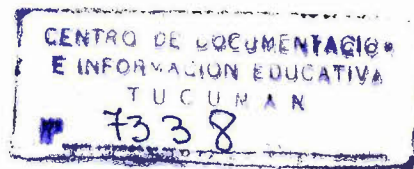 CENTRO DE DOCUMENTACIO
E INFORMACION EDUCATIVA
TUCUMAN
Nº 7338